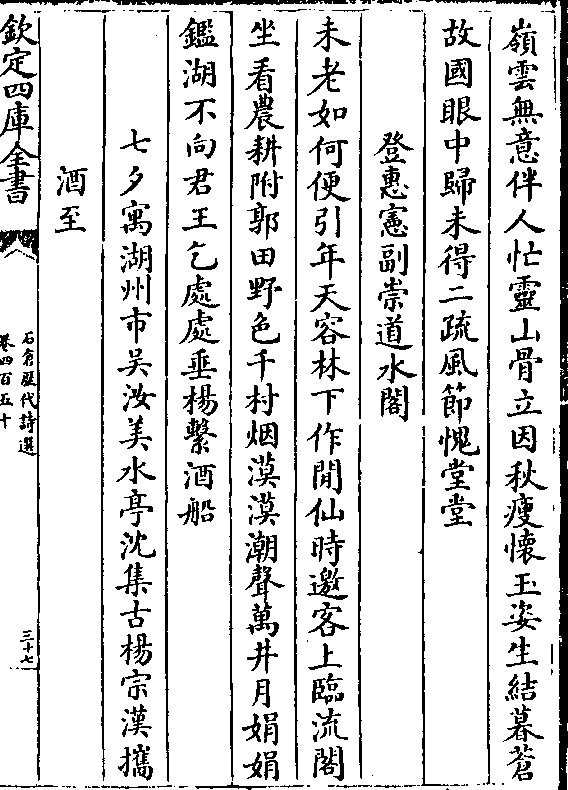 嶺雲無意伴人忙靈山骨立因秋瘦懷玉姿生結暮蒼
故國眼中歸未得二疏風節愧堂堂
登惠憲副崇道水閣
未老如何便引年天容林下作閒仙時邀客上臨流閣
坐看農耕附郭田野色千村烟漠漠潮聲萬井月娟娟
鑑湖不向君王乞處處垂楊繫酒船
七夕寓湖州市吴汝美水亭沈集古楊宗漢攜
酒至
欽定四庫全書
石倉歷代詩選
卷四百五十
三十七